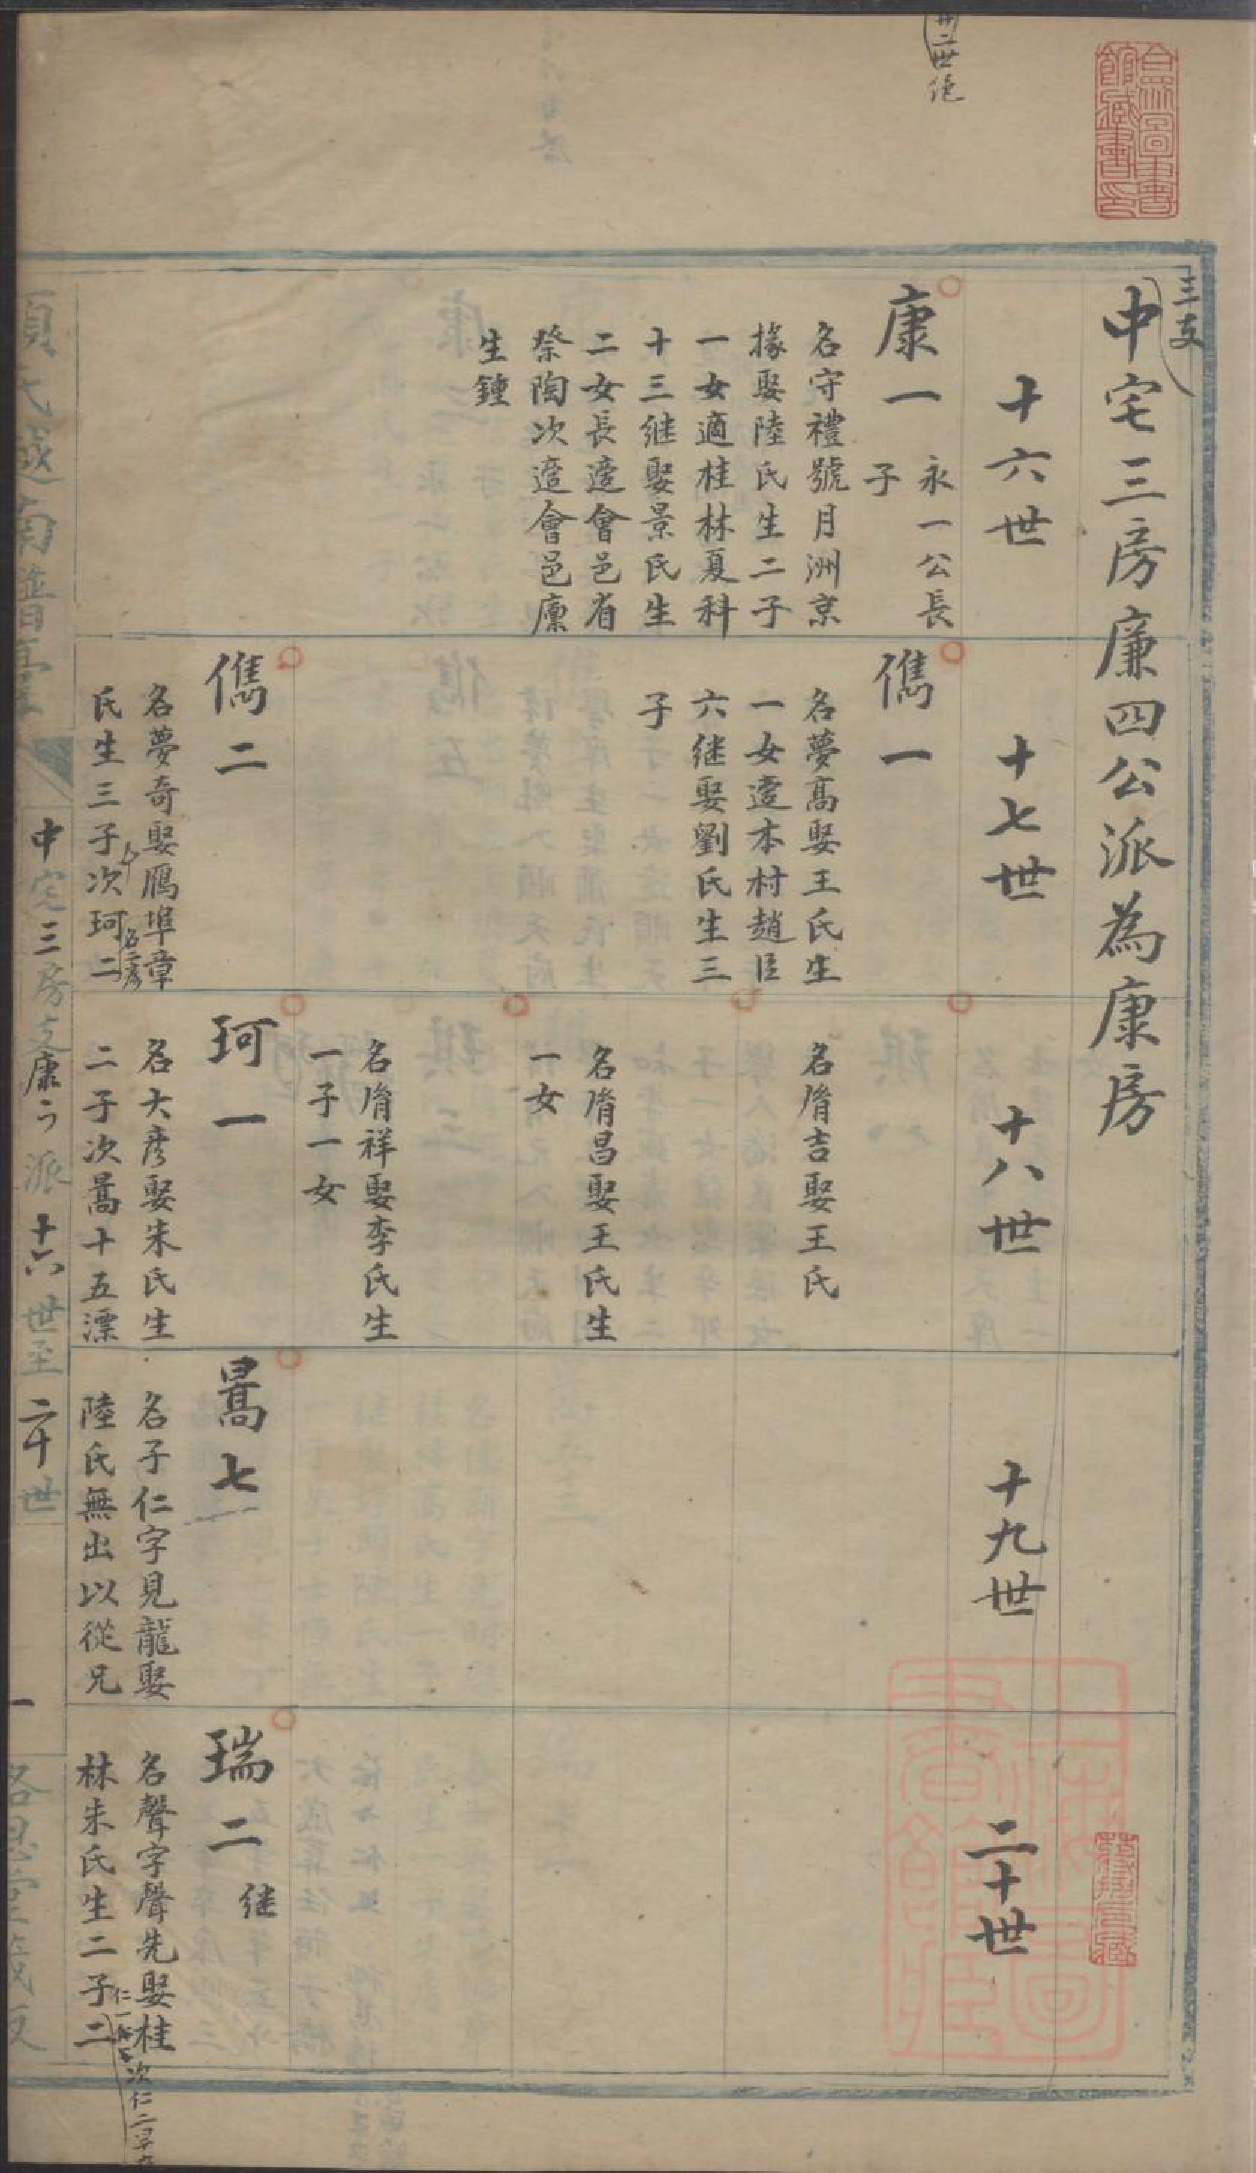 三支
中宅三房廉四公派為康房
十六世
十七世
十八世
十九世
二十世
康一
永一公長
子
名守禮號月洲京
掾娶陸氏生二子
一女適桂林夏科
十三继娶景氏生
二女長適會邑省
祭陶次適會邑廪
生鍾
儁一
名夢高娶王氏生
一女適本村趙臣
六继娶劉氏生三
子
儁二
名夢奇娶鴈埠章
氏生三子次珂二
名脩吉娶王氏
名脩昌娶王氏生
一女
名脩祥娶李氏生
一子一女
珂一
名大彦娶朱氏生
二子次暠十五漂
暠七
名子仁字見龍娶
陸氏無出以從兄
瑞二 继
名聲字聲先娶桂
林朱氏生二子二
次仁二早
中宅三房支康一派十六世至二十世
一